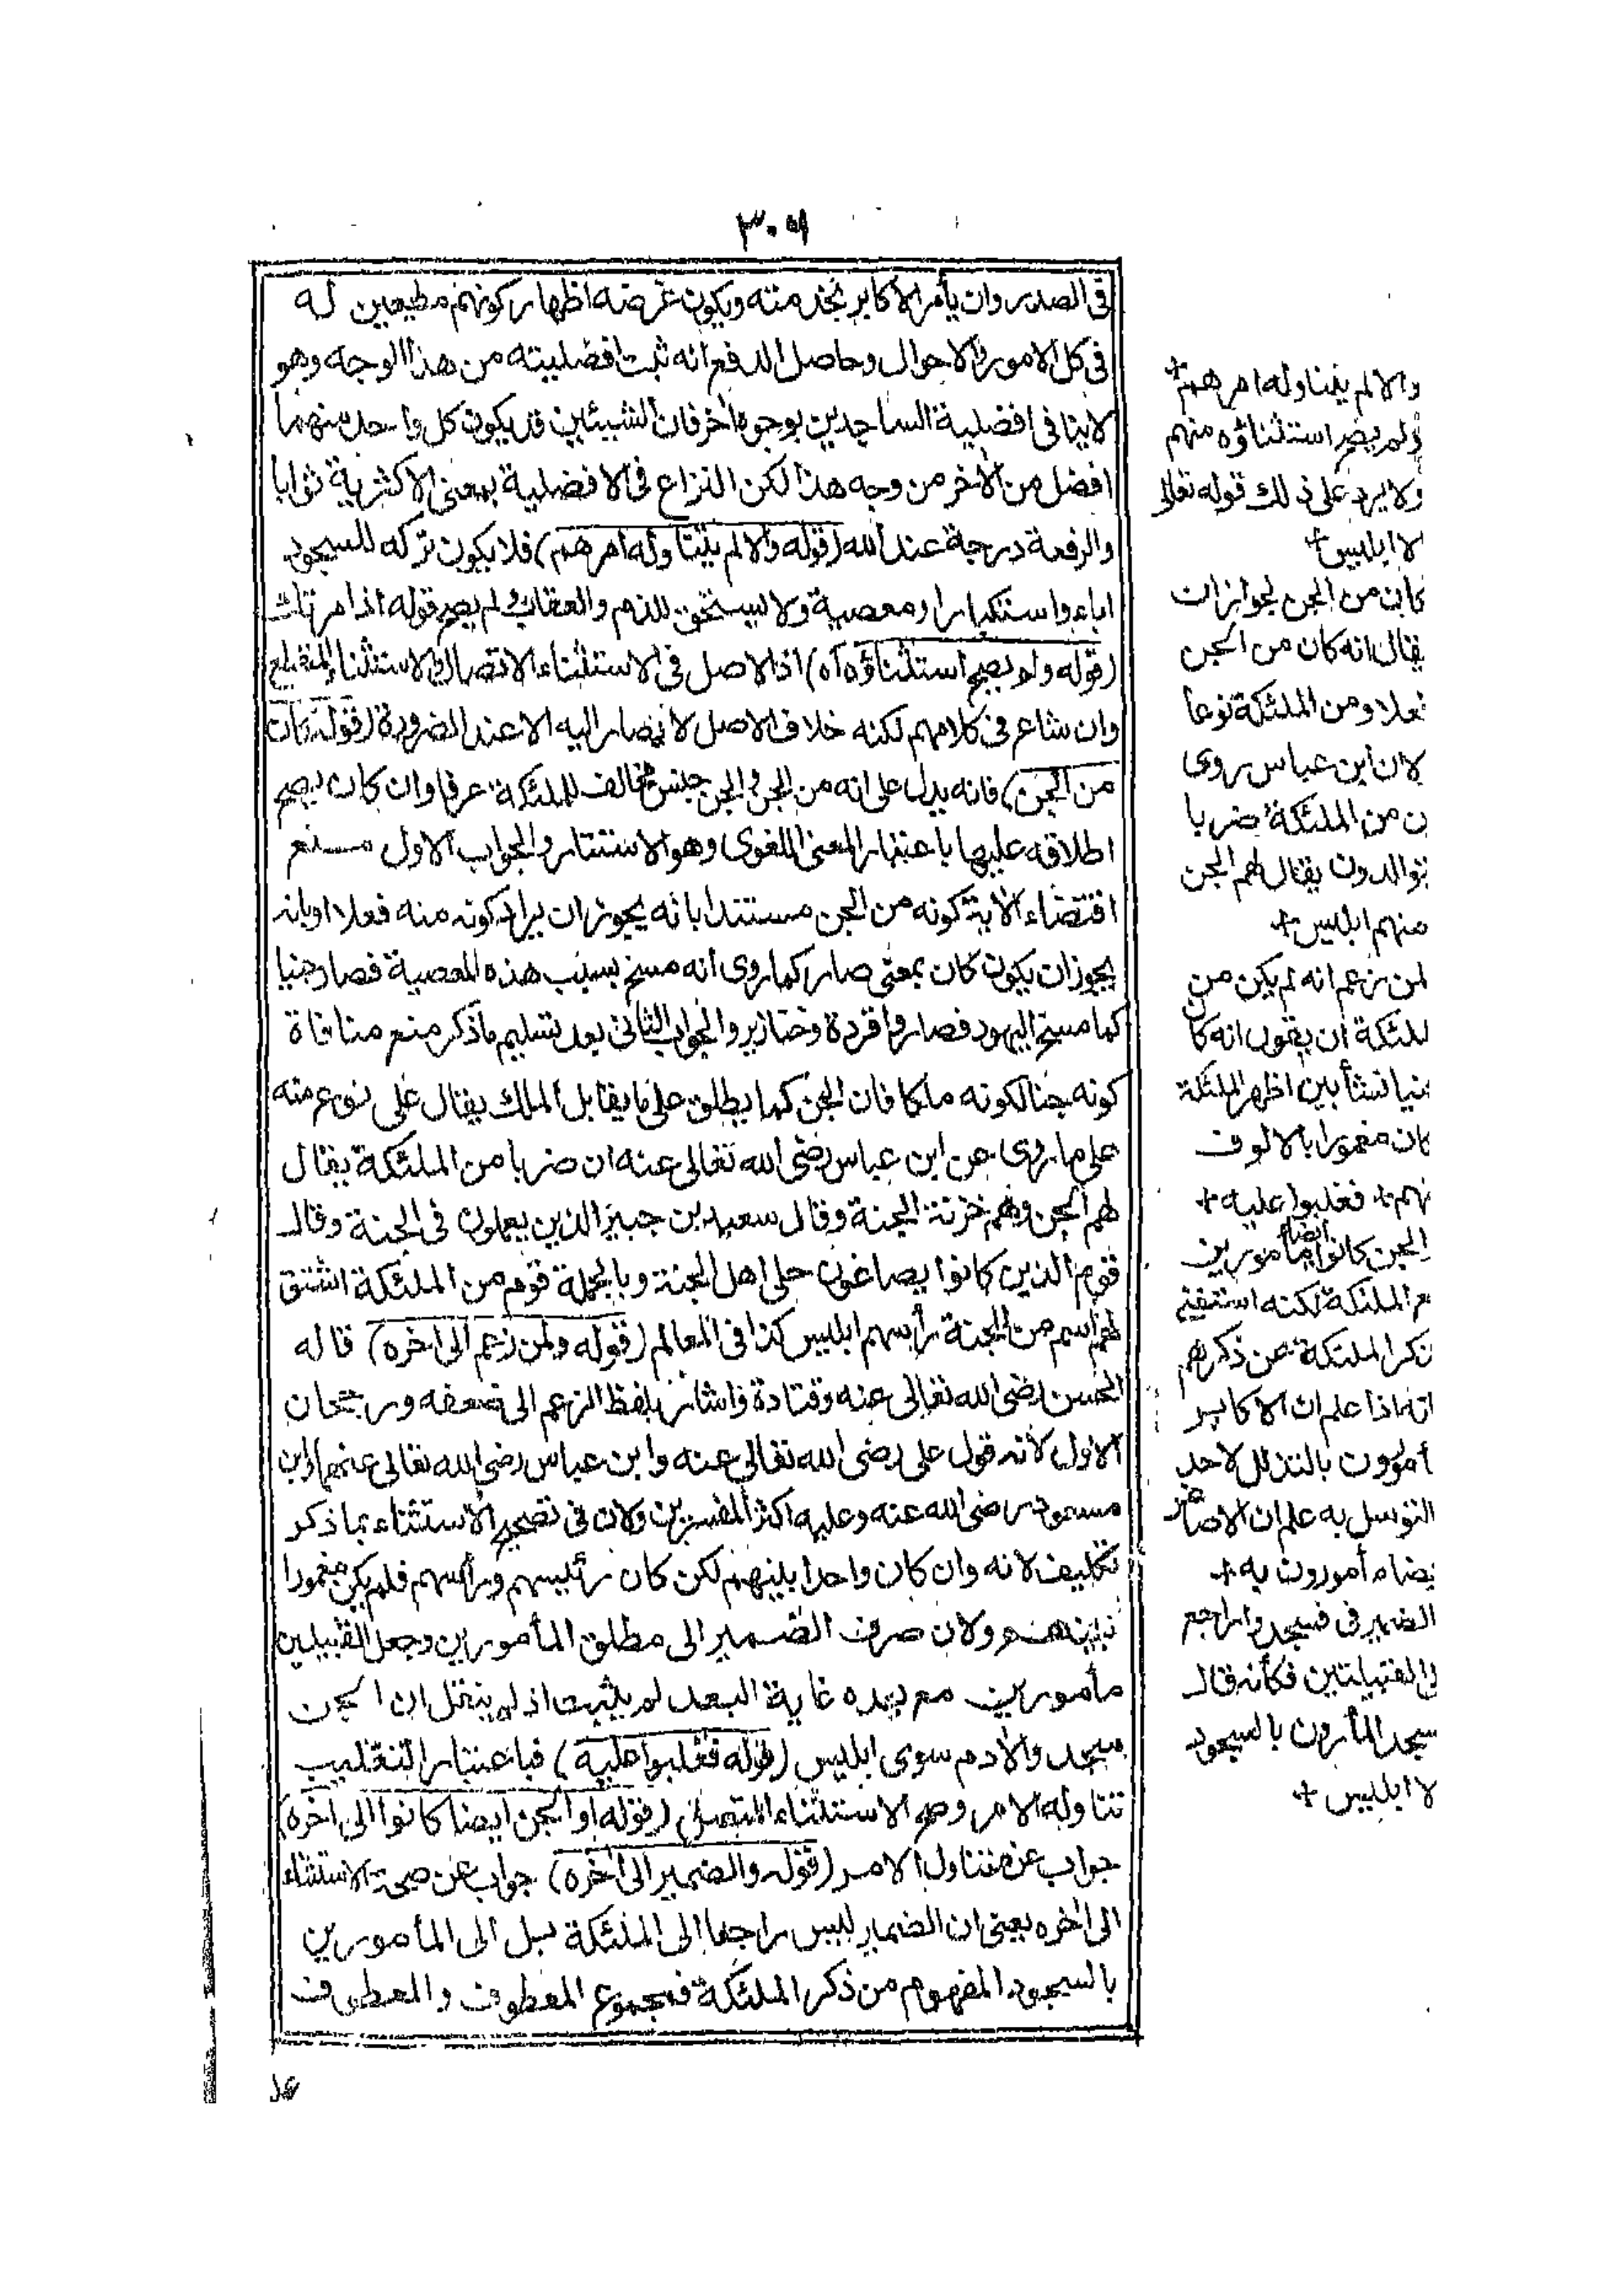 ٣٠٩
فى الصدر وان يأمر الاكابر بخدمته ويكون غرضه اظهار كونهم مطيعين له
فى كل الامور والاحوال وحاصل الدفع انه ثبت افضليته من هذا الوجه وهو
لا ينافى افضلية الساجدين بوجوه اخر فان الشيئين قد يكون كل واحد منهما
افضل من الاخر من وجه هذا لكن النزاع فى الافضلية بمعنى الاكثرية ثوابا
والرفعة درجة عند الله (قوله والا لم يتناوله امرهم) فلا يكون تركه للسجود
اباء واستكبارا ومعصية ولا يستحق للذم والعقاب ولم يصح قوله اذ امرتك
(قوله ولم يصح استثناؤه اه) اذ الاصل فى الاستثناء الاتصال والاستثناء المنقطع
وان شاع فى كلامهم لكنه خلاف الاصل لا يصار اليه الا عند الضرورة (قوله كان
من الجن) فانه يدل على انه من الجن والجن جنس مخالف للملئكة عرفا وان كان يصح
اطلاقه عليها باعتبار المعنى اللغوى وهو الاستتار والجواب الاول منع
اقتضاء الاية كونه من الجن مستندا بانه يجوز ان يراد كونه منه فعلا او بانه
يجوز ان يكون كان بمعنى صار كما روى انه مسخ بسبب هذه المعصية فصار جنيا
كما مسخ اليهود فصاروا قردة وخنازير والجواب الثانى بعد تسليم ما ذكر منع منافاة
كونه جنا لكونه ملكا فان الجن كما يطلق على ما يقابل الملك يقال على نوع منه
على ما روى عن ابن عباس رضى الله تعالى عنه ان ضربا من الملئكة يقال
لهم الجن وهم خزنة الجنة وقال سعيد بن جبير الذين يعملون فى الجنة وقال
قوم الذين كانوا يصاغون حلى اهل الجنة وبالجملة قوم من الملئكة اشتق
لهم اسم من الجنة رأسهم ابليس كذا فى المعالم (قوله ولمن زعم الى اخره) قاله
الحسن رضى الله تعالى عنه وقتادة واشار بلفظ الزعم الى ضعفه ورجحان
الاول لانه قول على رضى الله تعالى عنه وابن عباس رضى الله تعالى عنهما وابن
مسعود رضى الله عنه وعليه اكثر المفسرين ولان فى تصحيح الاستثناء بما ذكر
تكليف لانه وان كان واحدا بينهم لكن كان رئيسهم ورأسهم فلم يكن مغمورا
بينهم ولان صرف الضمير الى مطلق المأمورين وجعل القبيلين
مأمورين مع بعده غاية البعد لم يثبت اذ لم ينقل ان الجن
سجدوا لادم سوى ابليس (قوله فغلبوا عليه) فباعتبار التغليب
تناوله الامر وصح الاستثناء المتصل (قوله او الجن ايضا كانوا الى اخره)
جواب عن تناول الامر (قوله والضمير الى اخره) جواب عن صحة الاستثناء
الى اخره يعنى ان الضمير ليس راجعا الى الملئكة بل الى المأمورين
بالسجود المفهوم من ذكر الملئكة فمجموع المعطوف والمعطوف
والا لم يتناوله امرهم+
ولم يصح استثناؤه منهم
ولا يرد على ذلك قوله تعالى
لا ابليس+
كان من الجن لجواز ان
يقال انه كان من الجن
فعلا ومن الملئكة نوعا
لان ابن عباس روى
ن من الملئكة ضربا
يتوالدون يقال لهم الجن
منهم ابليس+
لمن زعم انه لم يكن من
لملئكة ان يقول انه كان
جنيا نشأ بين اظهر الملئكة
كان مغمورا بالالوف
نهم+ فغلبوا عليه+
الجن كانوا ايضا مأمورين
مع الملئكة لكنه استغنى
بذكر الملئكة عن ذكرهم
انه اذا علم ان الاكابر
أمورون بالتذلل لاحد
التوسل به علم ان الاصاغر
يضا مأمورون به+
الضمير فى فسجدوا راجع
لى القبيلتين فكأنه قال
سجد المأمورون بالسجود
لا ابليس+